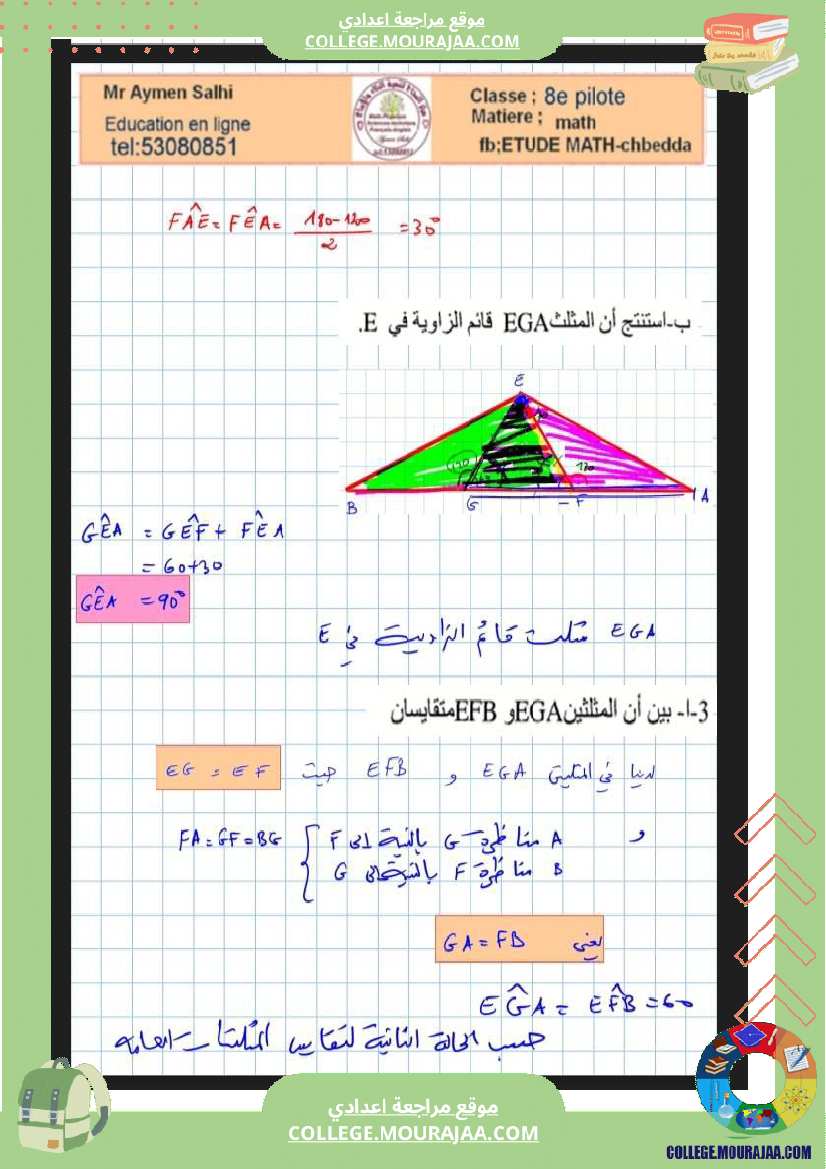 موقع مراجعة اعدادي
COLLEGE.MOURAJAA.COM
Mr Aymen Salhi
Education en ligne
tel:53080851
Classe ; 8e pilote
Matiere ; math
fb;ETUDE MATH-chbedda
FÂE = FÊA = (180-120)/2 = 30°
ب-استنتج أن المثلث EGA قائم الزاوية في E.
E
120
B G F A
GÊA = GÊF + FÊA
= 60+30
GÊA = 90°
EGA مثلث قائم الزاوية في E
3-ا- بين أن المثلثين EGA و EFB متقايسان
لدينا في المثلثين EGA و EFB حيث EG = EF
و A مناظرة G بالنسبة إلى F FA = GF = BG
B مناظرة F بالنسبة إلى G
يعني GA = FB
EĜA = EF̂B = 60
حسب الحالة الثانية لتقايس المثلثات العامة
موقع مراجعة اعدادي
COLLEGE.MOURAJAA.COM
COLLEGE.MOURAJAA.COM